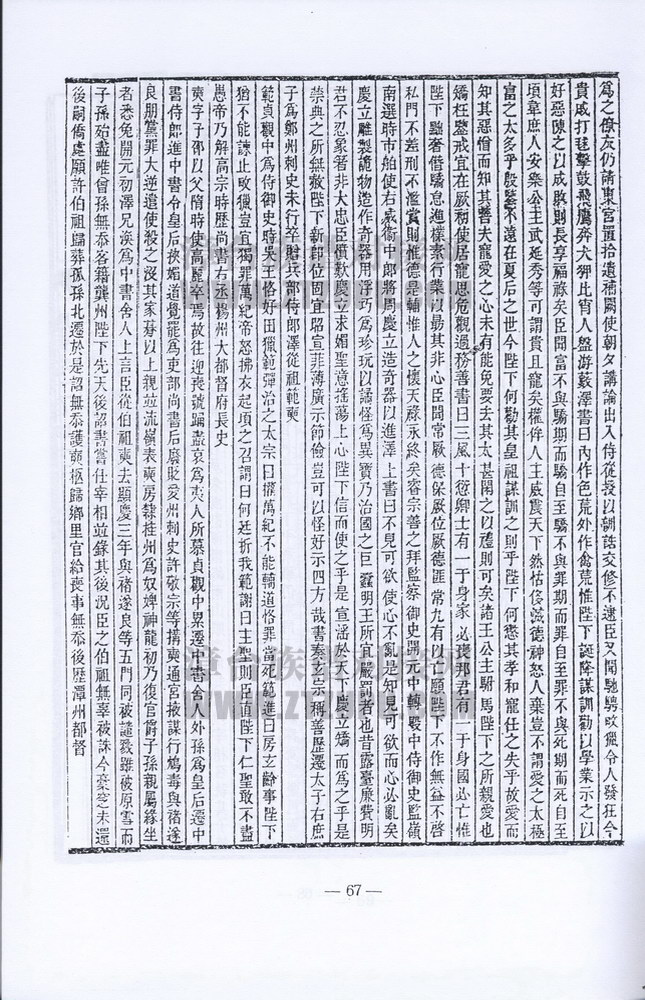 爲之僚友仍請東宮置拾遺補闕使朝夕講論出入侍從授以訓誥交修不逮臣又聞馳騁畋獵令人發狂今
貴戚打毬擊鼓飛鷹奔犬狎比宵人盤游藪澤書曰內作色荒外作禽荒惟陛下誕降謀訓勸以學業示之以
好惡陳之以成敗則長享福祿矣臣聞富不與驕期而驕自至驕不與罪期而罪自至罪不與死期而死自至
頃韋庶人安樂公主武延秀等可謂貴且寵矣權侔人主威震天下然怙侈滅德神怒人棄豈不謂愛之太極
富之太多乎殷鑒不遠在夏后之世今陛下何勸其皇祖謀訓之則乎陛下何懲其孝和寵任之失乎故愛而
知其惡憎而知其善夫寵愛之心未有能免要去其太甚閑之以禮則可矣諸王公主駙馬陛下之所親愛也
矯枉鑒戒宜在厥初使居寵思危觀過務善書曰三風十愆卿士有一于身家必喪邦君有一于身國必亡惟
陛下黜奢僭驕怠進樸素行業以勗其非心臣聞常厥德保厥位厥德匪常九有以亡願陛下不作無益不啓
私門不差刑不濫賞則惟德是輔惟人之懷天祿永終矣睿宗善之拜監察御史開元中轉殿中侍御史監嶺
南選時市舶使右威衞中郎將周慶立造奇器以進澤上書曰不見可欲使心不亂是知見可欲而心必亂矣
慶立雕製詭物造作奇器用浮巧爲珍玩以譎怪爲異寶乃治國之巨蠹明王所宜嚴罰者也昔露臺靡費明
君不忍象箸非大忠臣憤歎慶立求媚聖意搖蕩上心陛下信而使之乎是宣淫於天下慶立矯而爲之乎是
崇典之所無赦陛下新即位固宜昭宣菲薄廣示節儉豈可以怪好示四方哉書奏玄宗稱善歷遷太子右庶
子爲鄭州刺史未行卒贈兵部侍郎澤從祖範奭
範貞觀中爲侍御史時吳王恪好田獵範彈治之太宗曰權萬紀不能輔道恪罪當死範進曰房玄齡事陛下
猶不能諫止畋獵豈宜獨罪萬紀帝怒拂衣起頃之召謂曰何廷折我範謝曰主聖則臣直陛下仁聖敢不盡
愚帝乃解高宗時歷尚書右丞揚州大都督府長史
奭字子邵以父隋時使高麗卒焉故往迎喪號踊盡哀爲夷人所慕貞觀中累遷中書舍人外孫爲皇后遷中
書侍郎進中書令皇后挾媚道覺罷爲吏部尚書后廢貶愛州刺史許敬宗等搆奭通宮掖謀行鴆毒與褚遂
良朋黨罪大逆遣使殺之沒其家朞以上親並流嶺表奭房隸桂州爲奴婢神龍初乃復官爵子孫親屬緣坐
者悉免開元初澤兄渙爲中書舍人上言臣從伯祖奭去顯慶三年與褚遂良等五門同被譴戮雖被原雪而
子孫殆盡唯曾孫無忝客籍龔州陛下先天後詔書嘗仕宰相並錄其後況臣之伯祖無辜被誅今藁窆未還
後嗣僑處願許伯祖歸葬孤孫北遷於是詔無忝護奭柩歸鄉里官給喪事無忝後歷潭州都督
— 67 —